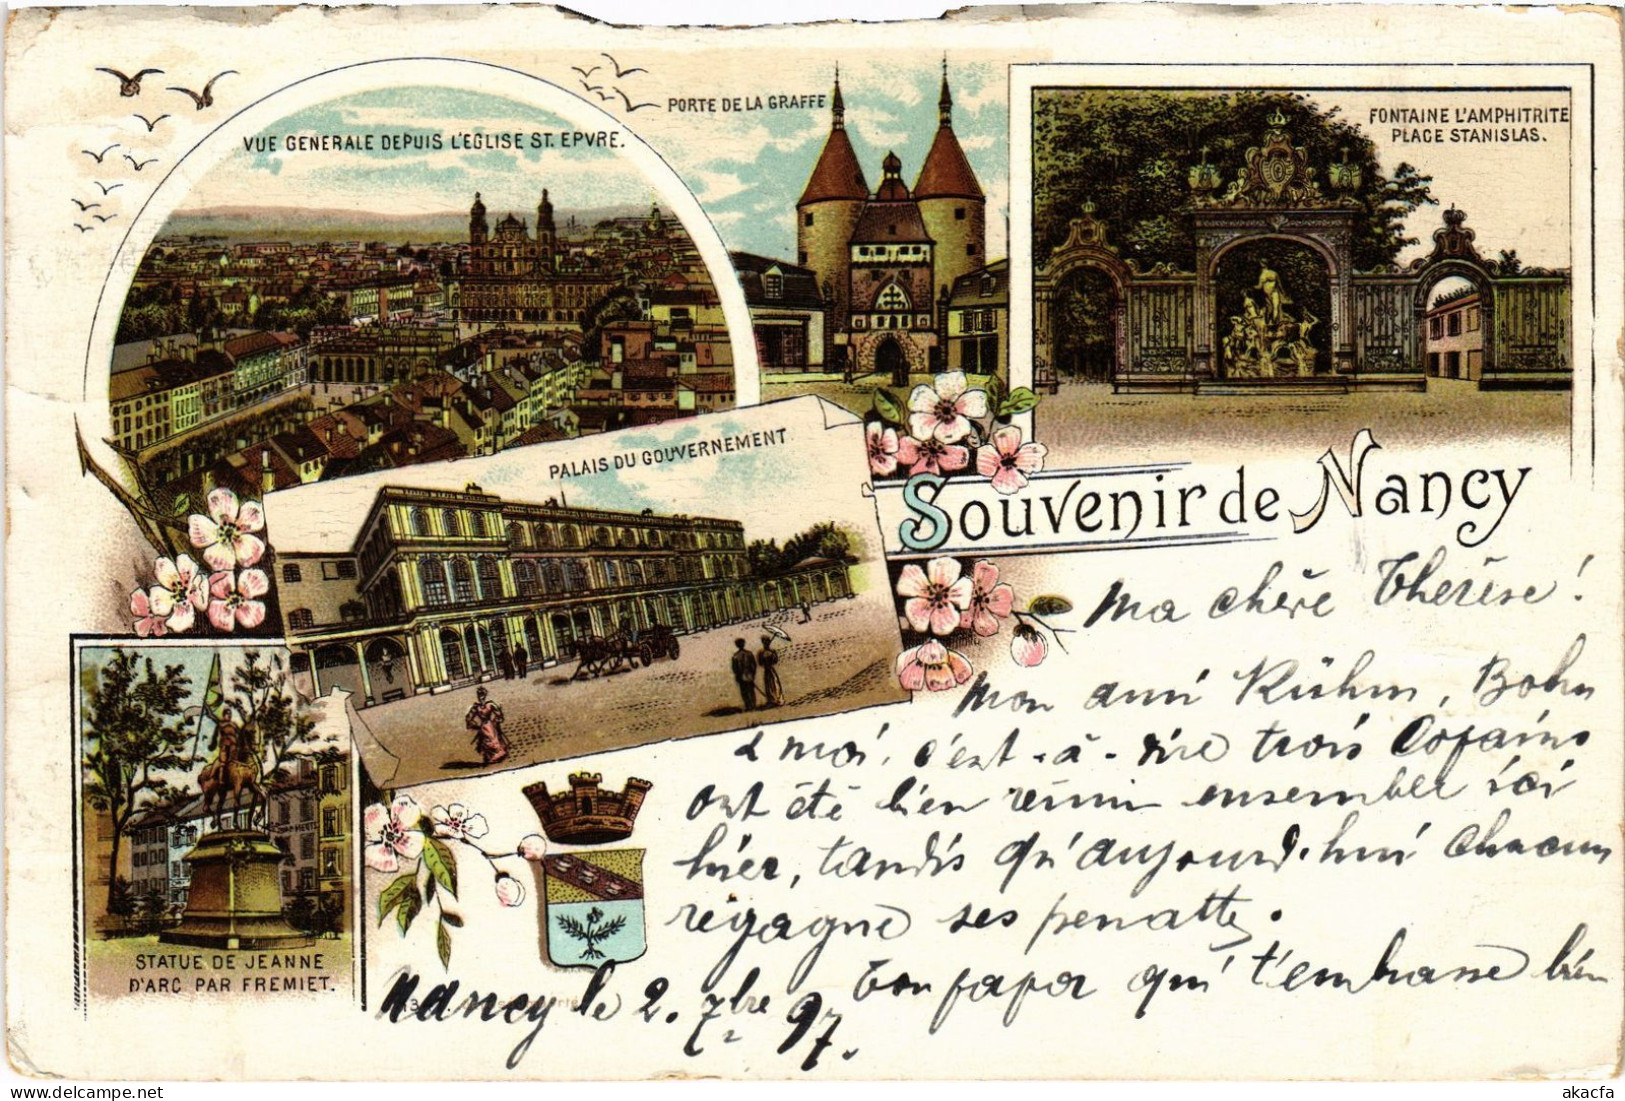 VUE GENERALE DEPUIS L'EGLISE ST. EPVRE.
PORTE DE LA GRAFFE
FONTAINE L'AMPHITRITE
PLACE STANISLAS.
PALAIS DU GOUVERNEMENT.
Souvenir de Nancy
STATUE DE JEANNE
D'ARC PAR FREMIET.
Ma chère Thérèse!
Mon ami Rühm, Bohn
& moi, c'est-à-dire trois Cofains
ont été bien réuni ensemble ici
hier, tandis qu'aujourd'hui chacun
régagne ses penatte.
Ton papa qui t'embrasse bien
Nancy le 2. 7bre 97.
akacfa